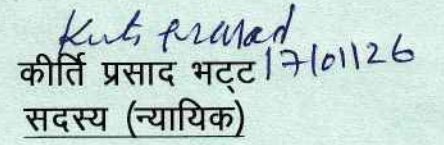 Kirti Prasad
कीर्ति प्रसाद भट्ट 17/01/26
सदस्य (न्यायिक)